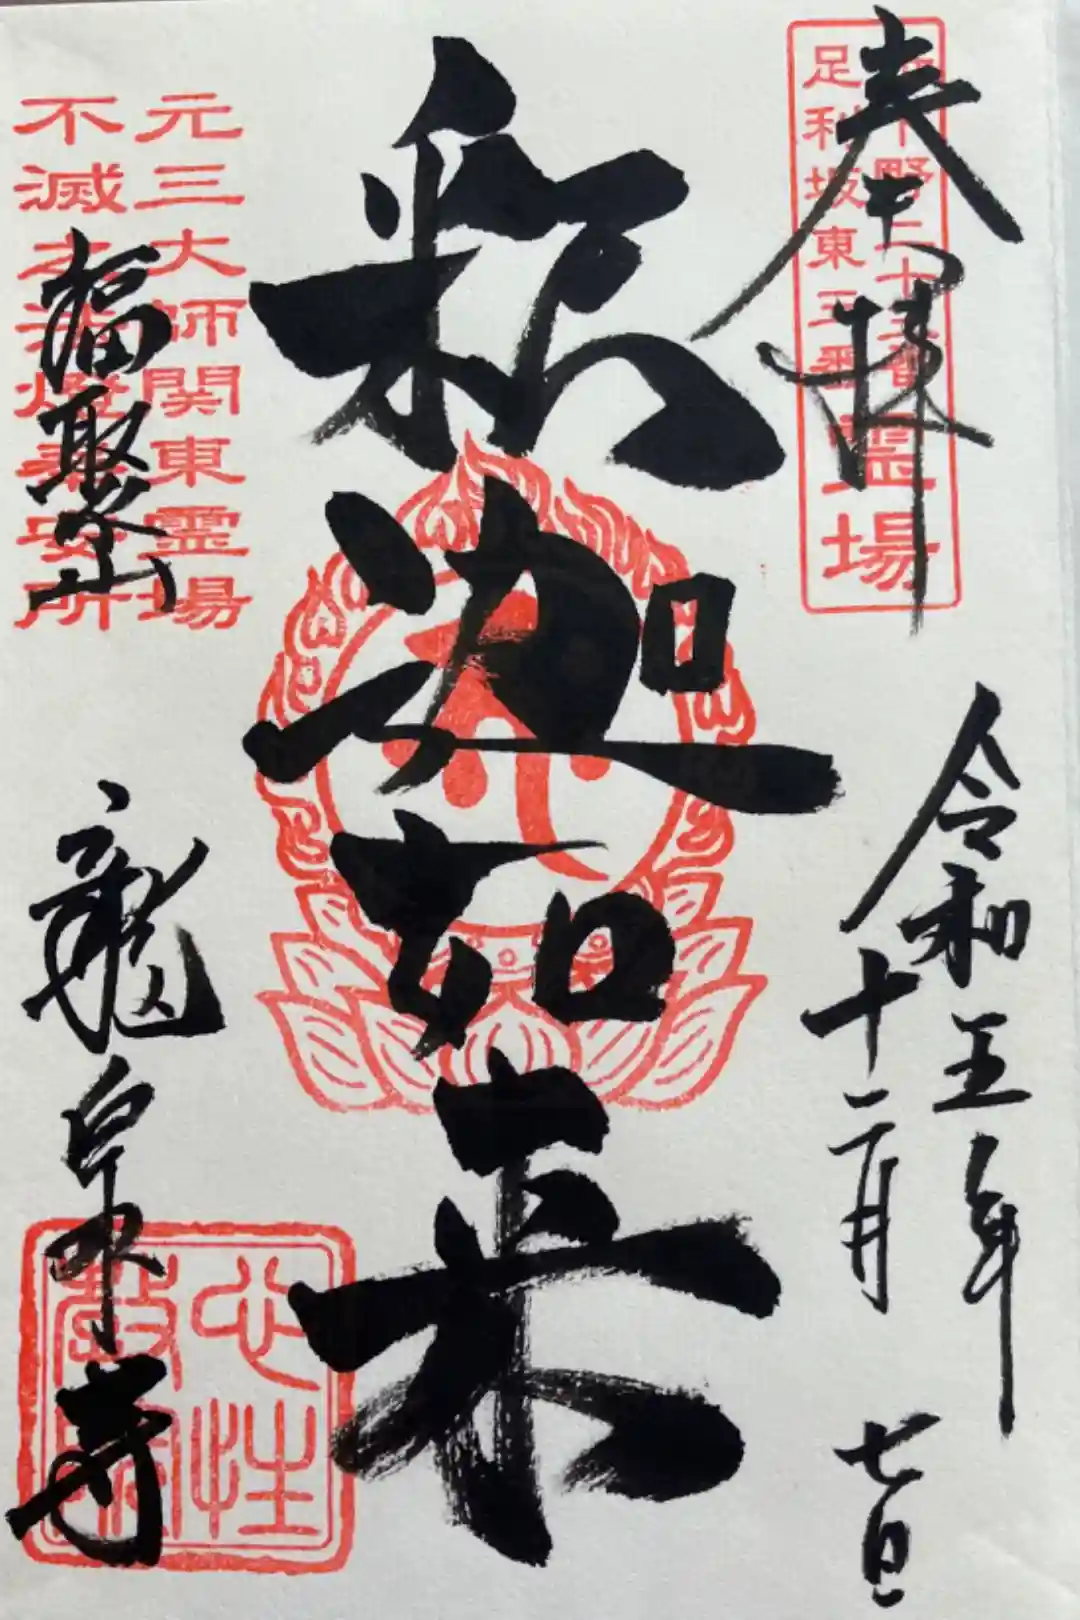 奉拝
下野三十三番霊場
足利坂東三番
令和五年
十二月
七日
釈迦如来
元三大師関東霊場
不滅之法燈奉安所
福聚山
龍泉寺
心性